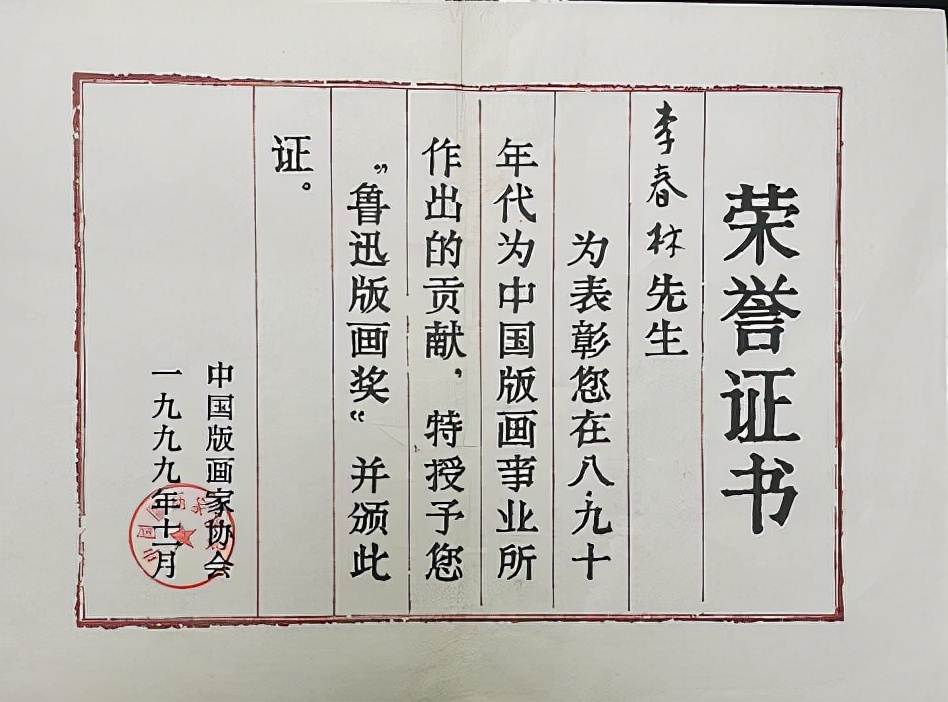 荣誉证书
李春林先生
为表彰您在八、九十
年代为中国版画事业所
作出的贡献，特授予您
“鲁迅版画奖”并颁此
证。
中国版画家协会
一九九九年十一月